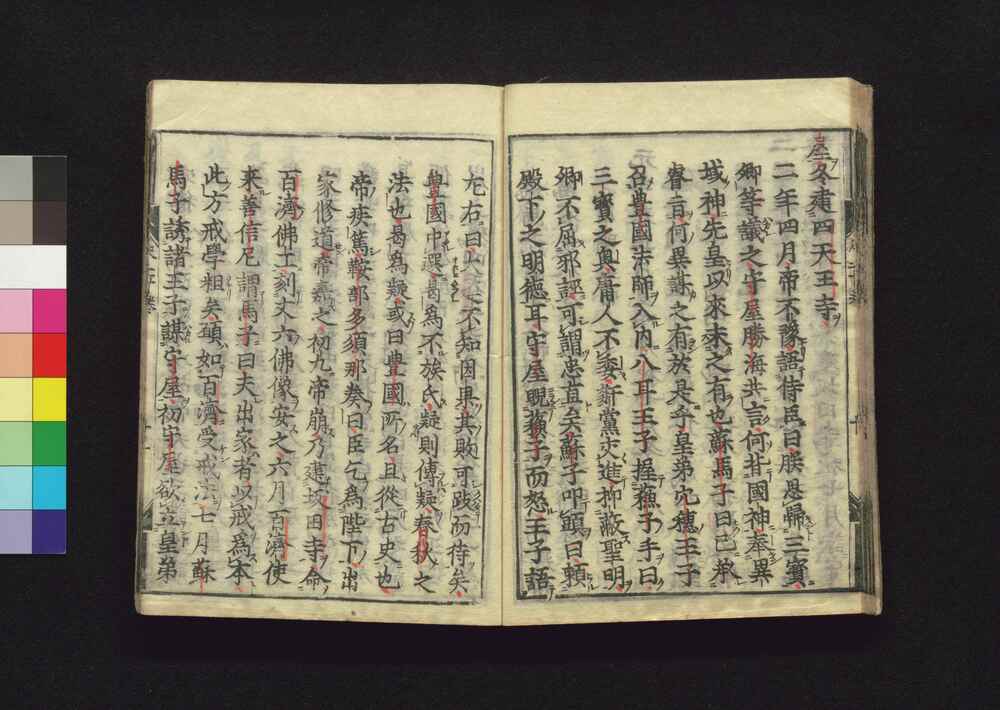 屋冬建四天王寺
二年四月帝不豫語侍臣曰朕思歸三寶
卿等議之守屋勝海共言何背國神奉異
域神先皇以來未之有也蘇馬子曰已承
睿旨何異謀之有於是乎皇弟穴穗王子
召豊國法師入內入耳王子握蘇子手曰
三寶之奧庸人不委奸黨交進抑蔽聖明
卿不屈邪誣可謂忠直矣蘇子叩頭曰賴
殿下之明德耳守屋睨蘇子而怒王子語
左右曰 不知因果其敗可跂而待矣
豊國中選曷爲不族氏疑則傳疑春秋之
法也曷爲疑或曰豊國所名且從古史也
帝疾篤鞍部多須那奏曰臣乞爲陛下出
家修道帝嘉之初九帝崩乃建坂田寺命
百濟佛工刻丈六佛像安之六月百濟使
来善信尼謂馬子曰夫出家者以戒爲本
此方戒學粗矣頋如百濟受戒法七月蘇
馬子誘諸王子謀守屋初守屋欲立皇弟